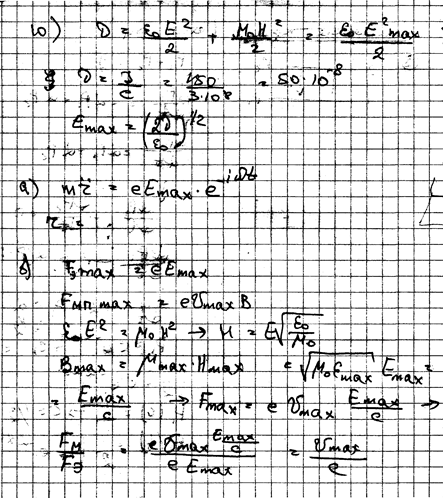 10) D = ε₀E²/2 + μ₀H²/2 = ε₀E²max/2
D = J/c = 150/3·10⁸ = 50·10⁻⁸
Emax = (2D/ε₀)^1/2
a) mr̈ = eEmax·e^-iωt
r =
б) Fэmax = eEmax
Fмп max = eυmax B
ε₀E² = μ₀H² → H = E√(ε₀/μ₀)
Bmax = μmax·Hmax = √(μ₀εmax) Emax²
= Emax/c → Fmax = e υmax Emax/c →
Fм/Fэ = e υmax Emax/c / e Emax = υmax/c